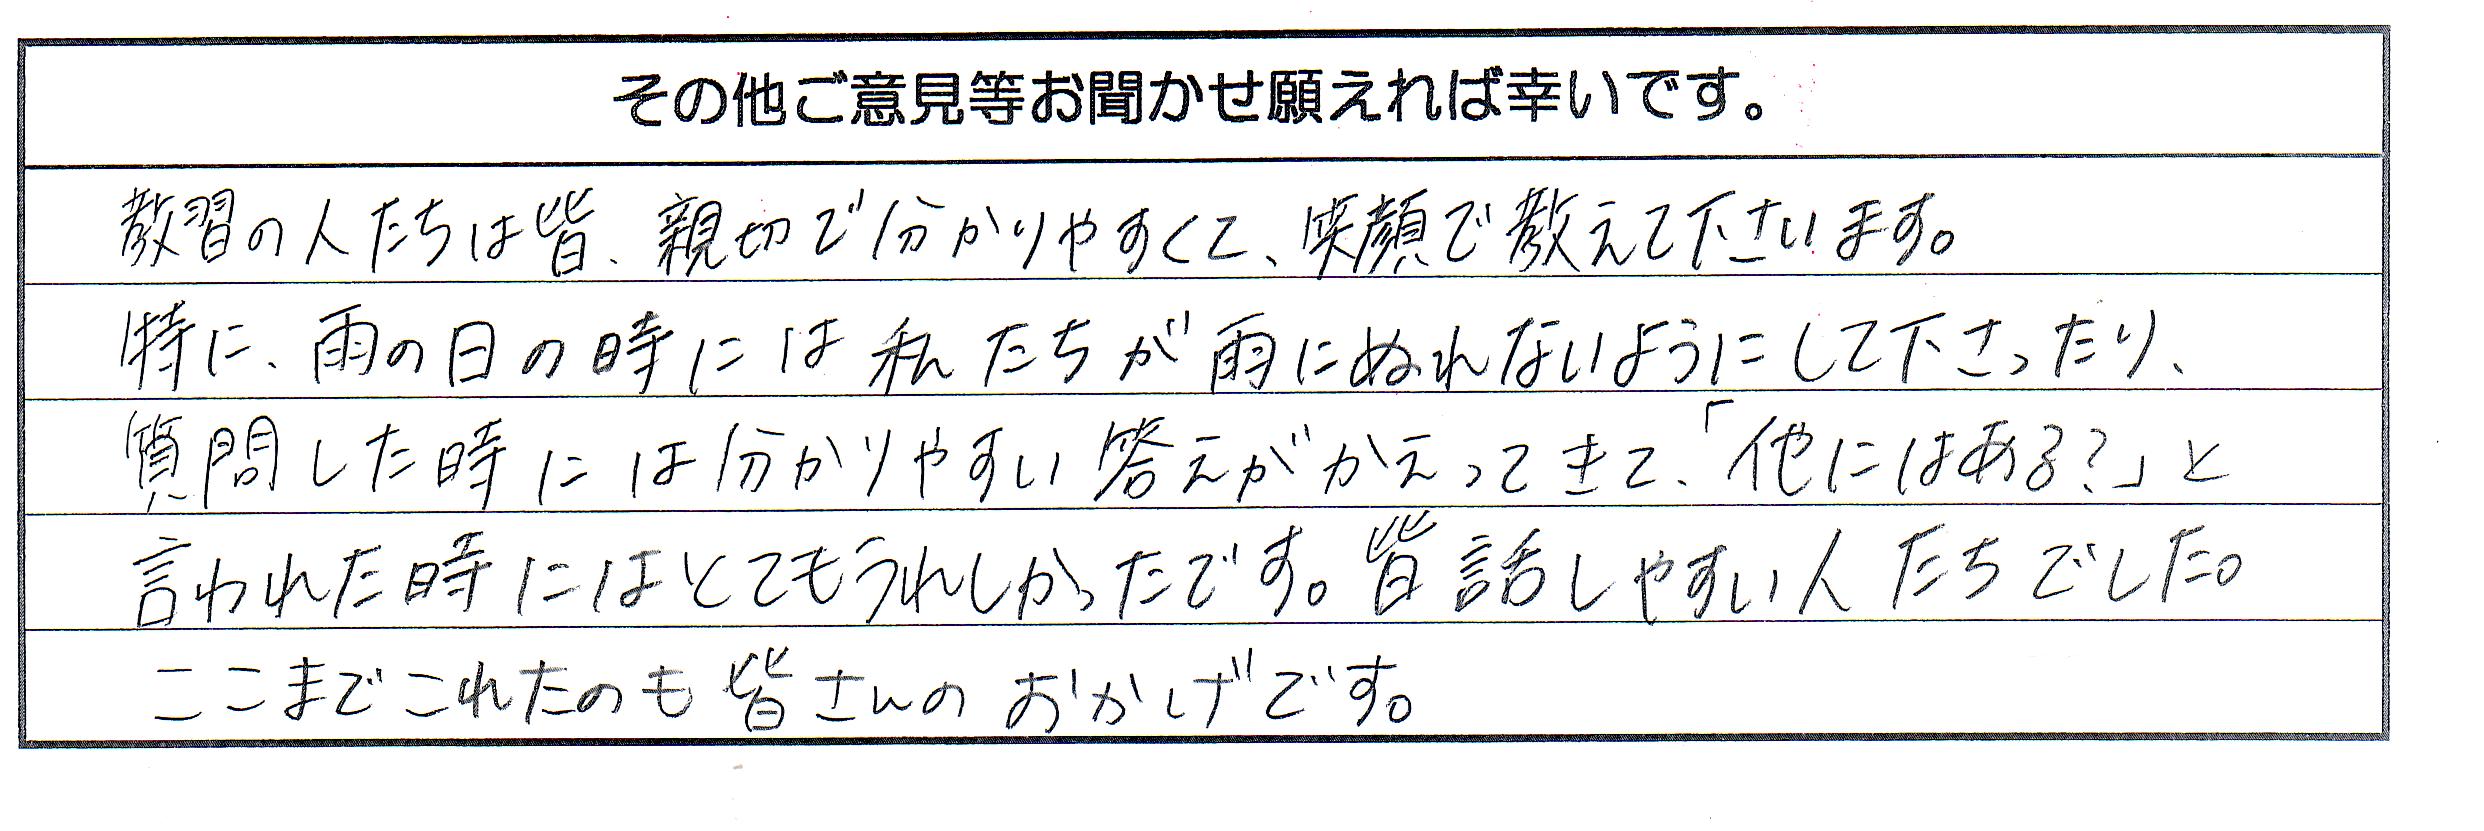 その他ご意見等お聞かせ願えれば幸いです。
教習の人たちは皆、親切で分かりやすくて、笑顔で教えて下さいます。
特に、雨の日の時には私たちが雨にぬれないようにして下さったり、
質問した時には分かりやすい答えがかえってきて、「他にはある?」と
言われた時にはとてもうれしかったです。皆話しやすい人たちでした。
ここまでこれたのも皆さんのおかげです。